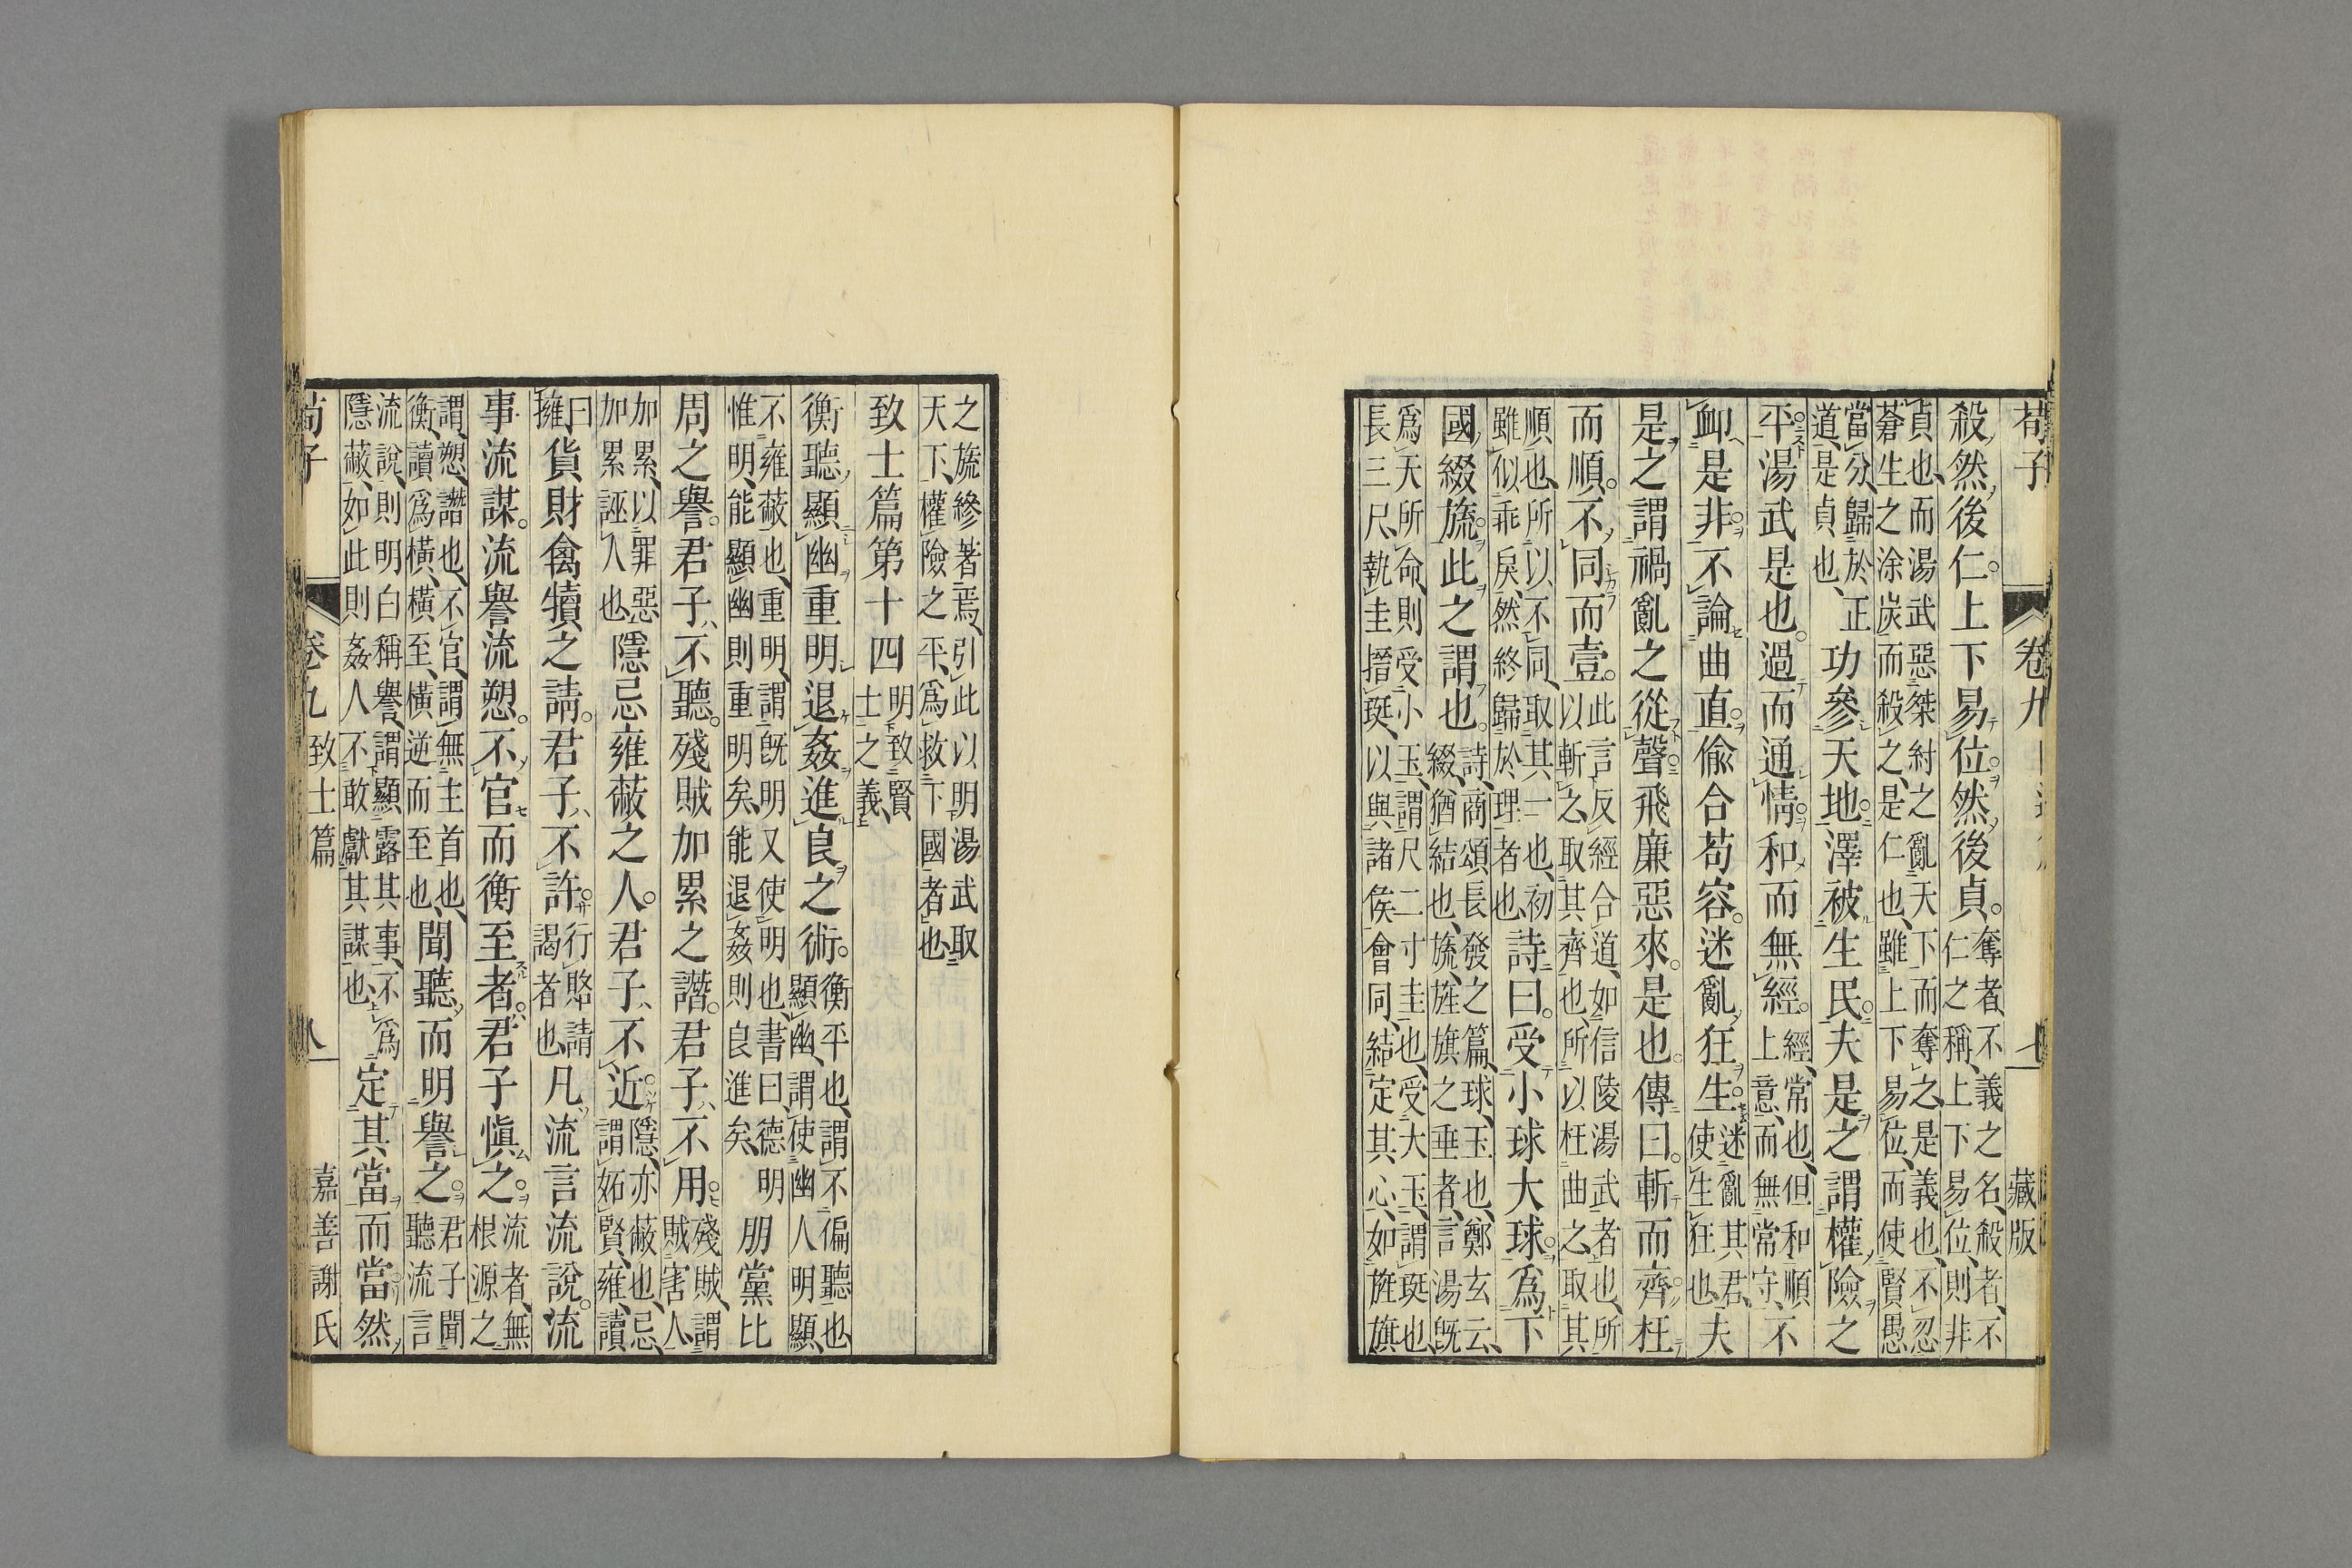 荀子 卷九 七 藏版
殺然後仁。上下易位。然後貞。奪者、不義之名、殺者、不仁之稱、上下易位、則非
貞也、而湯武惡桀紂之亂天下而奪之、是義也、不忍蒼生之涂炭而殺之、是仁也、雖上下易位、而使賢愚
當分、歸於正道、是貞也、功參天地。澤被生民。夫是之謂權險之
平。湯武是也。過而通情。和而無經。經、常也、但和順上意、而無常守、不
卹是非。不論曲直。偷合苟容。迷亂狂生。迷亂其君、使生狂也、夫
是之謂禍亂之從聲。飛廉惡來。是也。傳曰。斬而齊。枉
而順。不同而壹。此言反經合道、如信陵湯武者也、所以斬之、取其齊也、所以枉曲之、取其
順也、所以不同、取其一也、初雖似乖戾、然終歸於理者也、詩曰。受小球大球。爲下
國綴旒。此之謂也。詩、商頌、長發之篇、球、玉也、鄭玄云、綴、猶結也、旒、旌旗之垂者、言湯既
爲天所命、則受小玉、謂尺二寸圭也、受大玉、謂珽也、長三尺、執圭搢珽、以與諸侯會同、結定其心、如旌旗
之旒縿著焉、引此以明湯武取天下、權險之平、爲救下國者也、
致士篇第十四 明致賢士之義、
衡聽、顯幽重明、退姦進良之術。衡平也、謂不偏聽也、顯幽、謂使幽人明顯、
不雍蔽也、重明、謂既明又使明也、書曰、德明惟明、能顯幽則重明矣、能退姦則良進矣、朋黨比
周之譽。君子、不聽。殘賊加累之譖。君子、不用。殘賊、謂賊害人、
加累、以罪惡加累誣人也、隱忌雍蔽之人。君子、不近。隱、亦蔽也、忌、謂妬賢、雍、讀
曰擁、貨財禽犢、之請。君子、不許。行賂請謁者也、凡流言流說。流
事流謀。流譽流愬。不官而衡至者。君子愼之。流者、無根源之
謂、愬、譖也、不官、謂無主首也、衡、讀爲橫、橫至、橫逆而至也、聞聽、而明譽之。君子聞聽流言
流說、則明白稱譽、謂顯露其事、不爲隱蔽、如此則姦人不敢獻其謀也、定其當而當。然
荀子 卷九 致士篇 八 嘉善謝氏